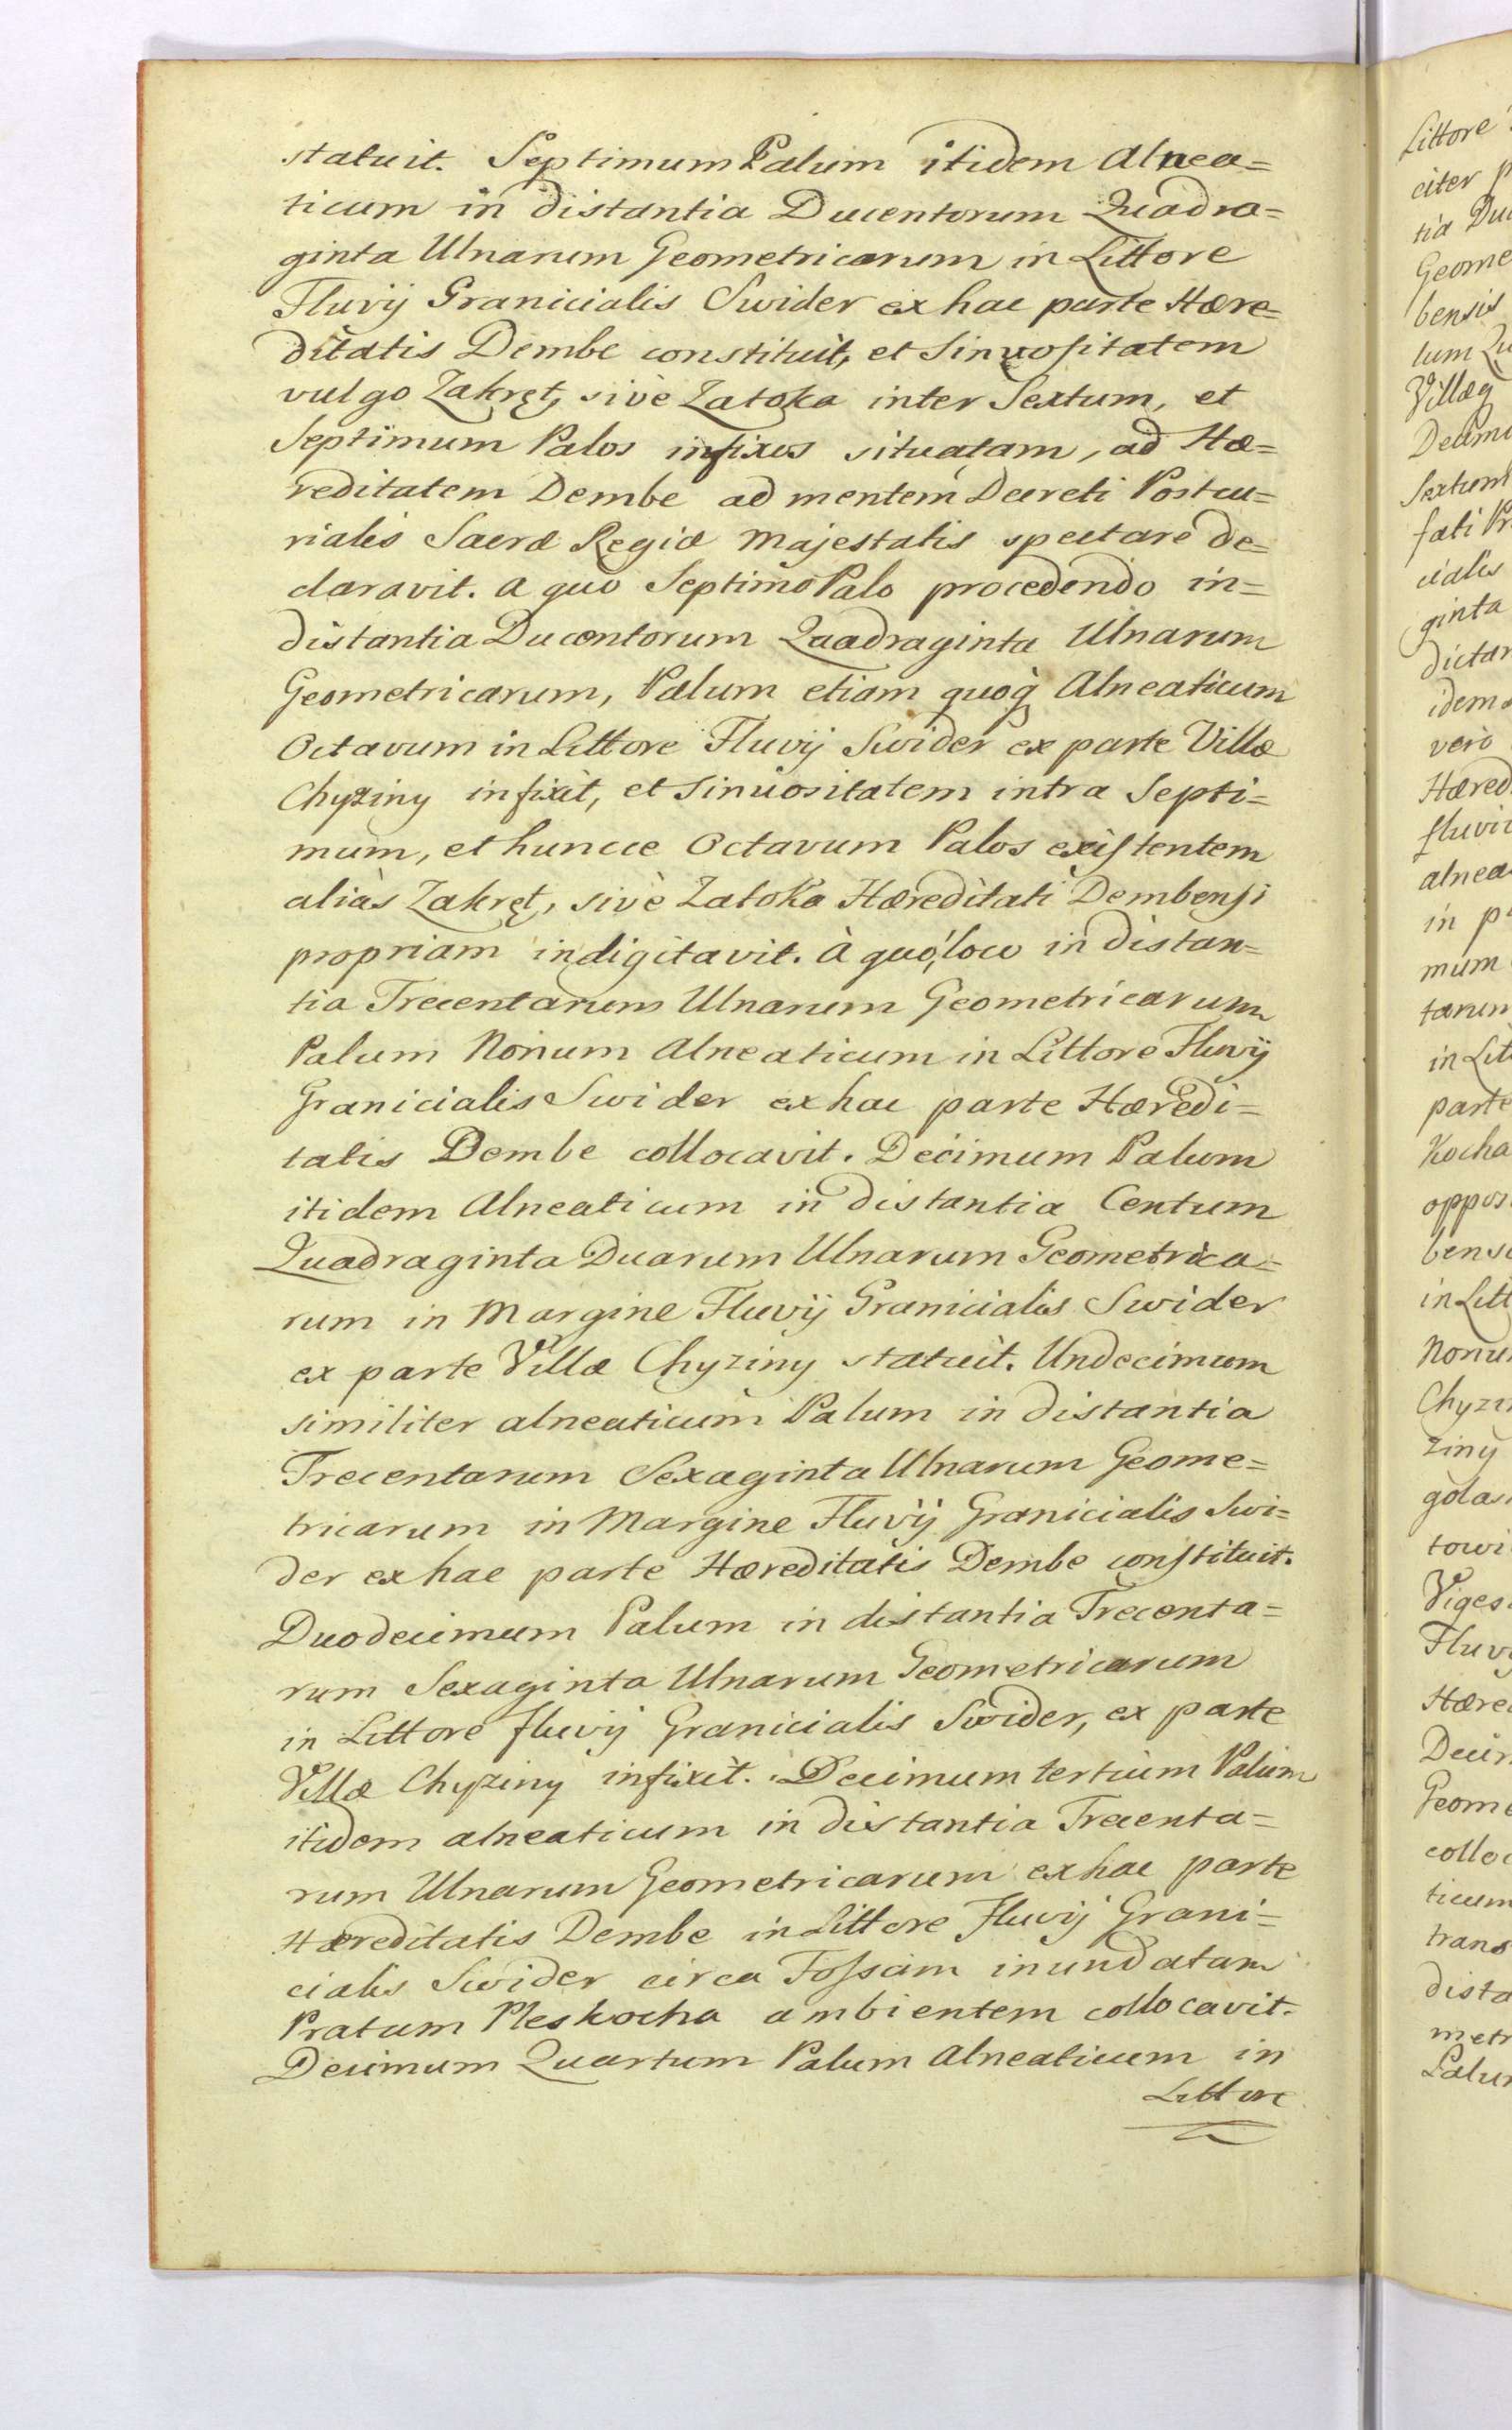 statuit. Septimum Palum itidem Alnea=
ticum in distantia Ducentorum Quadra=
ginta Ulnarum Geometricarum in Littore
Fluvij Granicialis Swider ex hac parte Hære=
ditatis Dembe constituit, et Sinuositatem
vulgo Zakręt, sivè Zatoka inter Sextum, et
Septimum Palos infixos situatam, ad Hæ=
reditatem Dembe ad mentem Decreti Postcu=
rialis Sacræ Regiæ Majestatis spectare de=
claravit. a quo Septimo Palo procedendo in=
distantia Ducentorum Quadraginta Ulnarum
Geometricarum, Palum etiam quoq̀ Alneaticum
Octavum in Littore Fluvij Swider ex parte Villæ
Chyziny infixit, et Sinuositatem intra Septi=
mum, et huncce Octavum Palos existentem
aliàs Zakręt, sivè Zatoka Hæreditati Dembensi
propriam indigitavit. à quo loco in distan=
tia Trecentarum Ulnarum Geometricarum
Palum Nonum Alneaticum in Littore Fluvij
Granicialis Swider ex hac parte Hæredi=
tatis Dembe collocavit. Decimum Palum
itidem Alneaticum in distantia Centum
Quadraginta Duarum Ulnarum Geometrica=
rum in Margine Fluvij Granicialis Swider
ex parte Villæ Chyziny statuit. Undecimum
similiter alneaticum Palum in distantia
Trecentarum Sexaginta Ulnarum Geome=
tricarum in Margine Fluvij Granicialis Swi=
der ex hac parte Hæreditatis Dembe constituit.
Duodecimum Palum in distantia Trecenta=
rum Sexaginta Ulnarum Geometricarum
in Littore fluvij Granicialis Swider, ex parte
Villæ Chyziny infixit. Decimum tertium Palum
itidem alneaticum in distantia Trecenta=
rum Ulnarum Geometricarum ex hac parte
Hæreditatis Dembe in Littore Fluvij Grani=
cialis Swider circa Fossam inundatam
Pratum Pleskocha ambientem collocavit.
Decimum Quartum Palum Alneaticum in
Littore
Littore
citer
Geome
bensis
lum
Villæ
Decim
Sextum
fati
cialis
ginta
dictar
idem
verò
Hæred
fluvi
alnea
in
mum
tarum
in
parte
Kocha
oppos
bensi
in Litt
Nonu
Chyzi
ziny
golas
towi
Viges
Fluv
Hære
Deci
Geome
colloc
ticum
trans
dista
metr
Palu